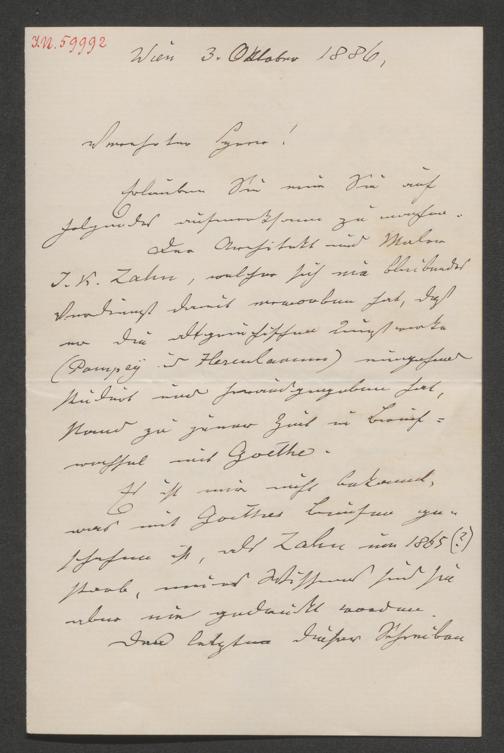 I.N. 59992
Wien 3. Oktober 1886,
Verehrter Herr!
Erlauben Sie mir Sie auf
folgendes aufmerksam zu machen.
Der Architekt und Maler
J. K. Zahn, welcher sich ein bleibendes
Verdienst damit erworben hat, daß
er die altgriechischen Kunstwerke
(Pompeji u Herculanum) eingehend
studirt und herausgegeben hat,
stand zu jener Zeit in Brief=
wechsel mit Goethe.
Es ist mir nicht bekannt,
was mit Goethes Briefen ge-
schehen ist, als Zahn um 1865 (?)
starb, meines Wissens sind sie
aber nie gedruckt worden.
Den letzten dieser Schreiben